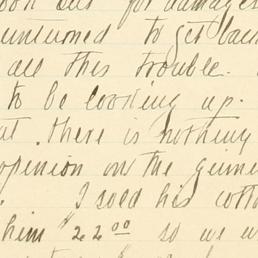 for damages
unturned to get back
all this trouble.
to be looking up.
at. there is nothing
opinion on the
. I sold his cotto
him $22 00 so we w